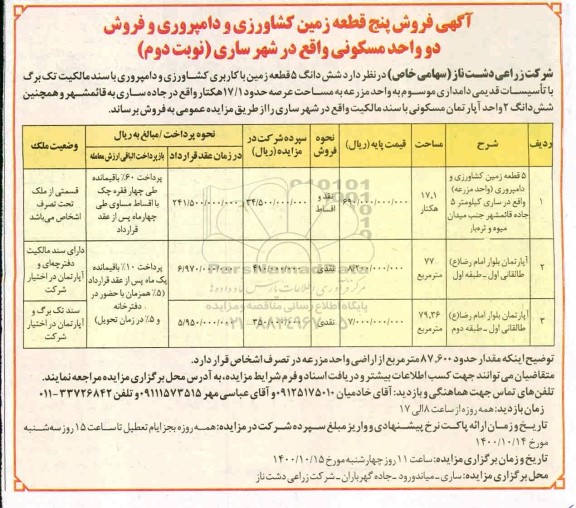 آگهی فروش پنج قطعه زمین کشاورزی و دامپروری و فروش
دو واحد مسکونی واقع در شهر ساری (نوبت دوم)
شرکت زراعی دشت ناز (سهامی خاص) در نظر دارد شش دانگ ۵ قطعه زمین با کاربری کشاورزی و دامپروری با سند مالکیت تک برگ
با تأسیسات قدیمی دامداری موسوم به واحد مزرعه به مساحت عرصه حدود ۱۷/۱ هکتار واقع در جاده ساری به قائمشهر و همچنین
شش دانگ ۲ واحد آپارتمان مسکونی با سند مالکیت واقع در شهر ساری را از طریق مزایده عمومی به فروش برساند.
ردیف
شرح
مساحت
قیمت پایه (ریال)
نحوه فروش
سپرده شرکت در مزایده (ریال)
نحوه پرداخت / مبالغ به ریال
در زمان عقد قرارداد
باز پرداخت الباقی ارزش معامله
وضعیت ملک
۱
۵ قطعه زمین کشاورزی و
دامپروری (واحد مزرعه)
واقع در ساری کیلومتر ۵
جاده قائمشهر جنب میدان
میوه و تره‌بار
۱۷،۱
هکتار
۶۹۰/۰۰۰/۰۰۰/۰۰۰
نقد و
اقساط
۳۴/۵۰۰/۰۰۰/۰۰۰
۲۴۱/۵۰۰/۰۰۰/۰۰۰
پرداخت ۶۰٪ باقیمانده
طی چهار فقره چک
با اقساط مساوی طی
چهارماه پس از عقد
قرارداد
قسمتی از ملک
تحت تصرف
اشخاص می‌باشد
۲
آپارتمان بلوار امام رضا(ع)
طالقانی اول - طبقه اول
۷۷
مترمربع
نقدی
۶/۹۷۰/۰۰۰/۰۰۰
پرداخت ۱۰٪ باقیمانده
یک ماه پس از عقد قرارداد
(۵٪ همزمان با حضور در
دفترخانه
و ۵٪ در زمان تحویل)
دارای سند مالکیت
دفترچه‌ای و
آپارتمان در اختیار
شرکت
۳
آپارتمان بلوار امام رضا(ع)
طالقانی اول - طبقه دوم
۷۹،۳۶
مترمربع
۷/۰۰۰/۰۰۰/۰۰۰
نقدی
۳۵۰/۰۰۰/۰۰۰
۵/۹۵۰/۰۰۰/۰۰۰
سند تک برگ و
آپارتمان در اختیار
شرکت
توضیح اینکه مقدار حدود ۸۷,۶۰۰ مترمربع از اراضی واحد مزرعه در تصرف اشخاص قرار دارد.
متقاضیان می توانند جهت کسب اطلاعات بیشتر و دریافت اسناد و فرم شرایط مزایده، به آدرس محل برگزاری مزایده مراجعه نمایند.
تلفن‌های تماس جهت هماهنگی و بازدید: آقای خادمیان ۰۹۱۲۵۱۷۵۰۱۰ و آقای عباسی مهر ۰۹۱۱۱۵۷۳۵۱۵ و تلفن ۳۳۷۲۶۸۴۲-۰۱۱
زمان بازدید: همه روزه از ساعت ۸ الی ۱۷
تاریخ و زمان ارائه پاکت نرخ پیشنهادی و واریز مبلغ سپرده شرکت در مزایده: همه روزه بجز ایام تعطیل تا ساعت ۱۵ روز سه‌شنبه
مورخ ۱۴۰۰/۱۰/۱۴
تاریخ و زمان برگزاری مزایده: ساعت ۱۱ روز چهارشنبه مورخ ۱۴۰۰/۱۰/۱۵
محل برگزاری مزایده: ساری - میاندورود - جاده گهرباران - شرکت زراعی دشت ناز